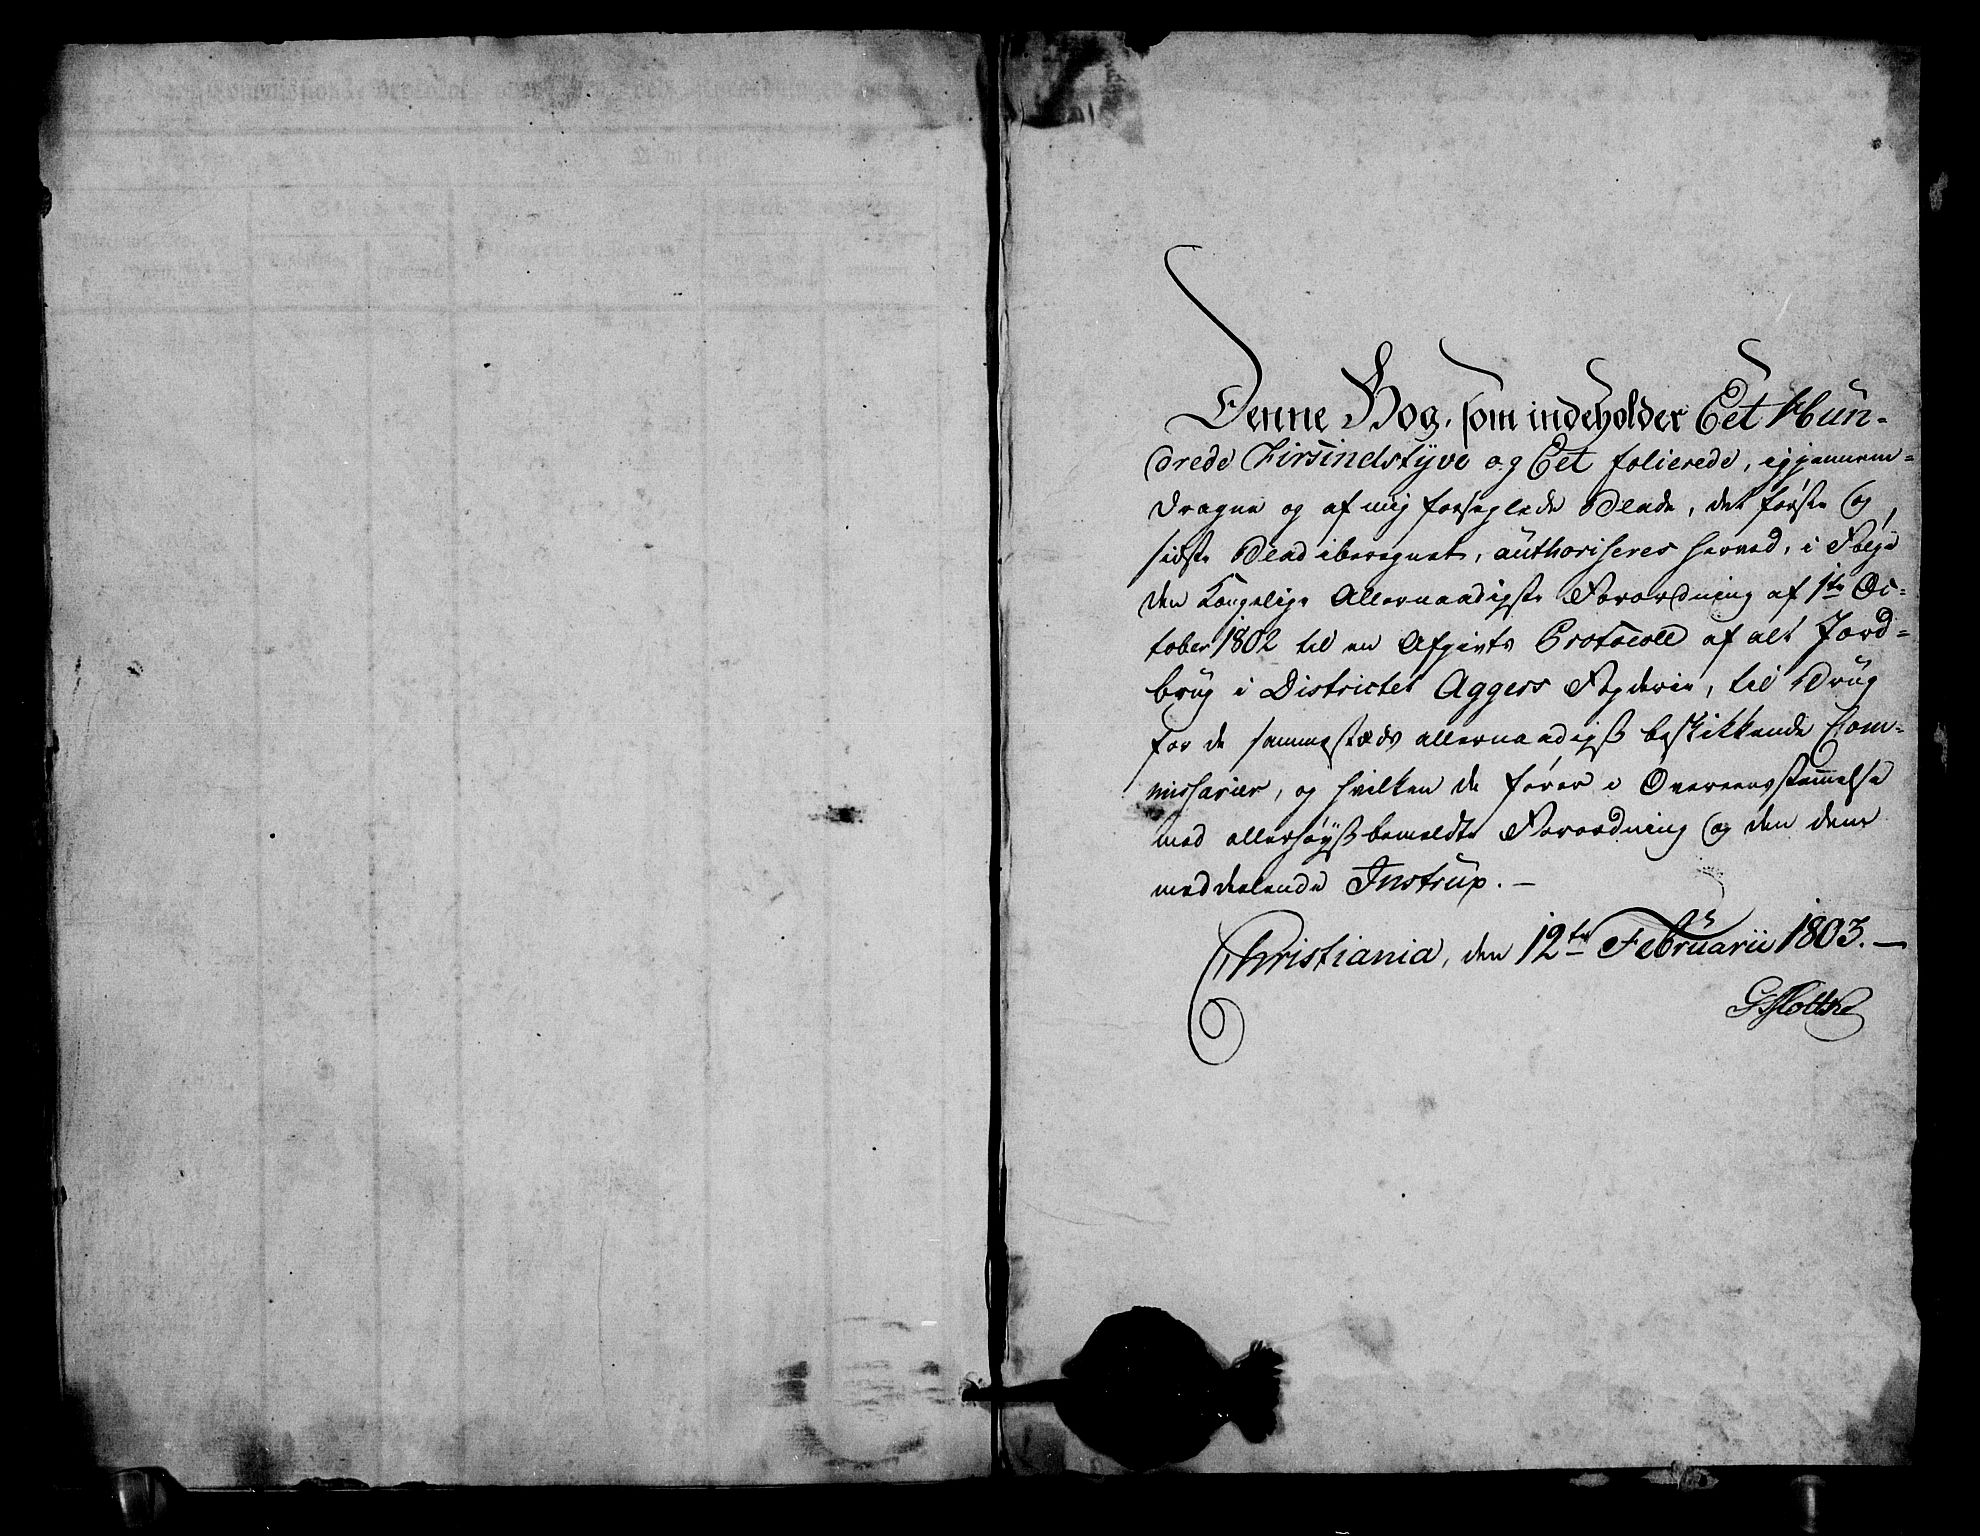 Denne Bog, som indeholder Eet Hun-
drede Firsindstÿve og Eet folierede, igjennem-
dragne og af mig forseglede Blade, det første og
sidste Blad iberegnet, authoriseres herved, i Følge
den Kongelige Allernaadigste Forordning af 1te Oc-
tober 1802 til en Afgivts Protocoll af alt Jord-
brug i Districtet Aggers Fogderie, til Brug
for de sammesteds allernaadigst beskikkende Com-
missarier, og hvilken de fører i Overeensstemmelse
med allerhøyst bemeldte Forordning og den dem
meddeelende Instrux. -
Christiania, den 12te Februarii 1803. -
GMoltke